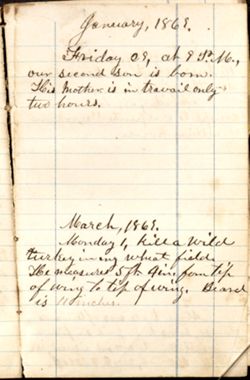 January, 1869.
Friday 29, at 9 P.M.,
our second son is born.
His mother is in travail only
two hours.
March, 1869.
Monday 1, kill a wild
turkey in my wheat field.
He measures 5 ft 4 in. from tip
of wing to tip of wing. Beard
is 11 inches.